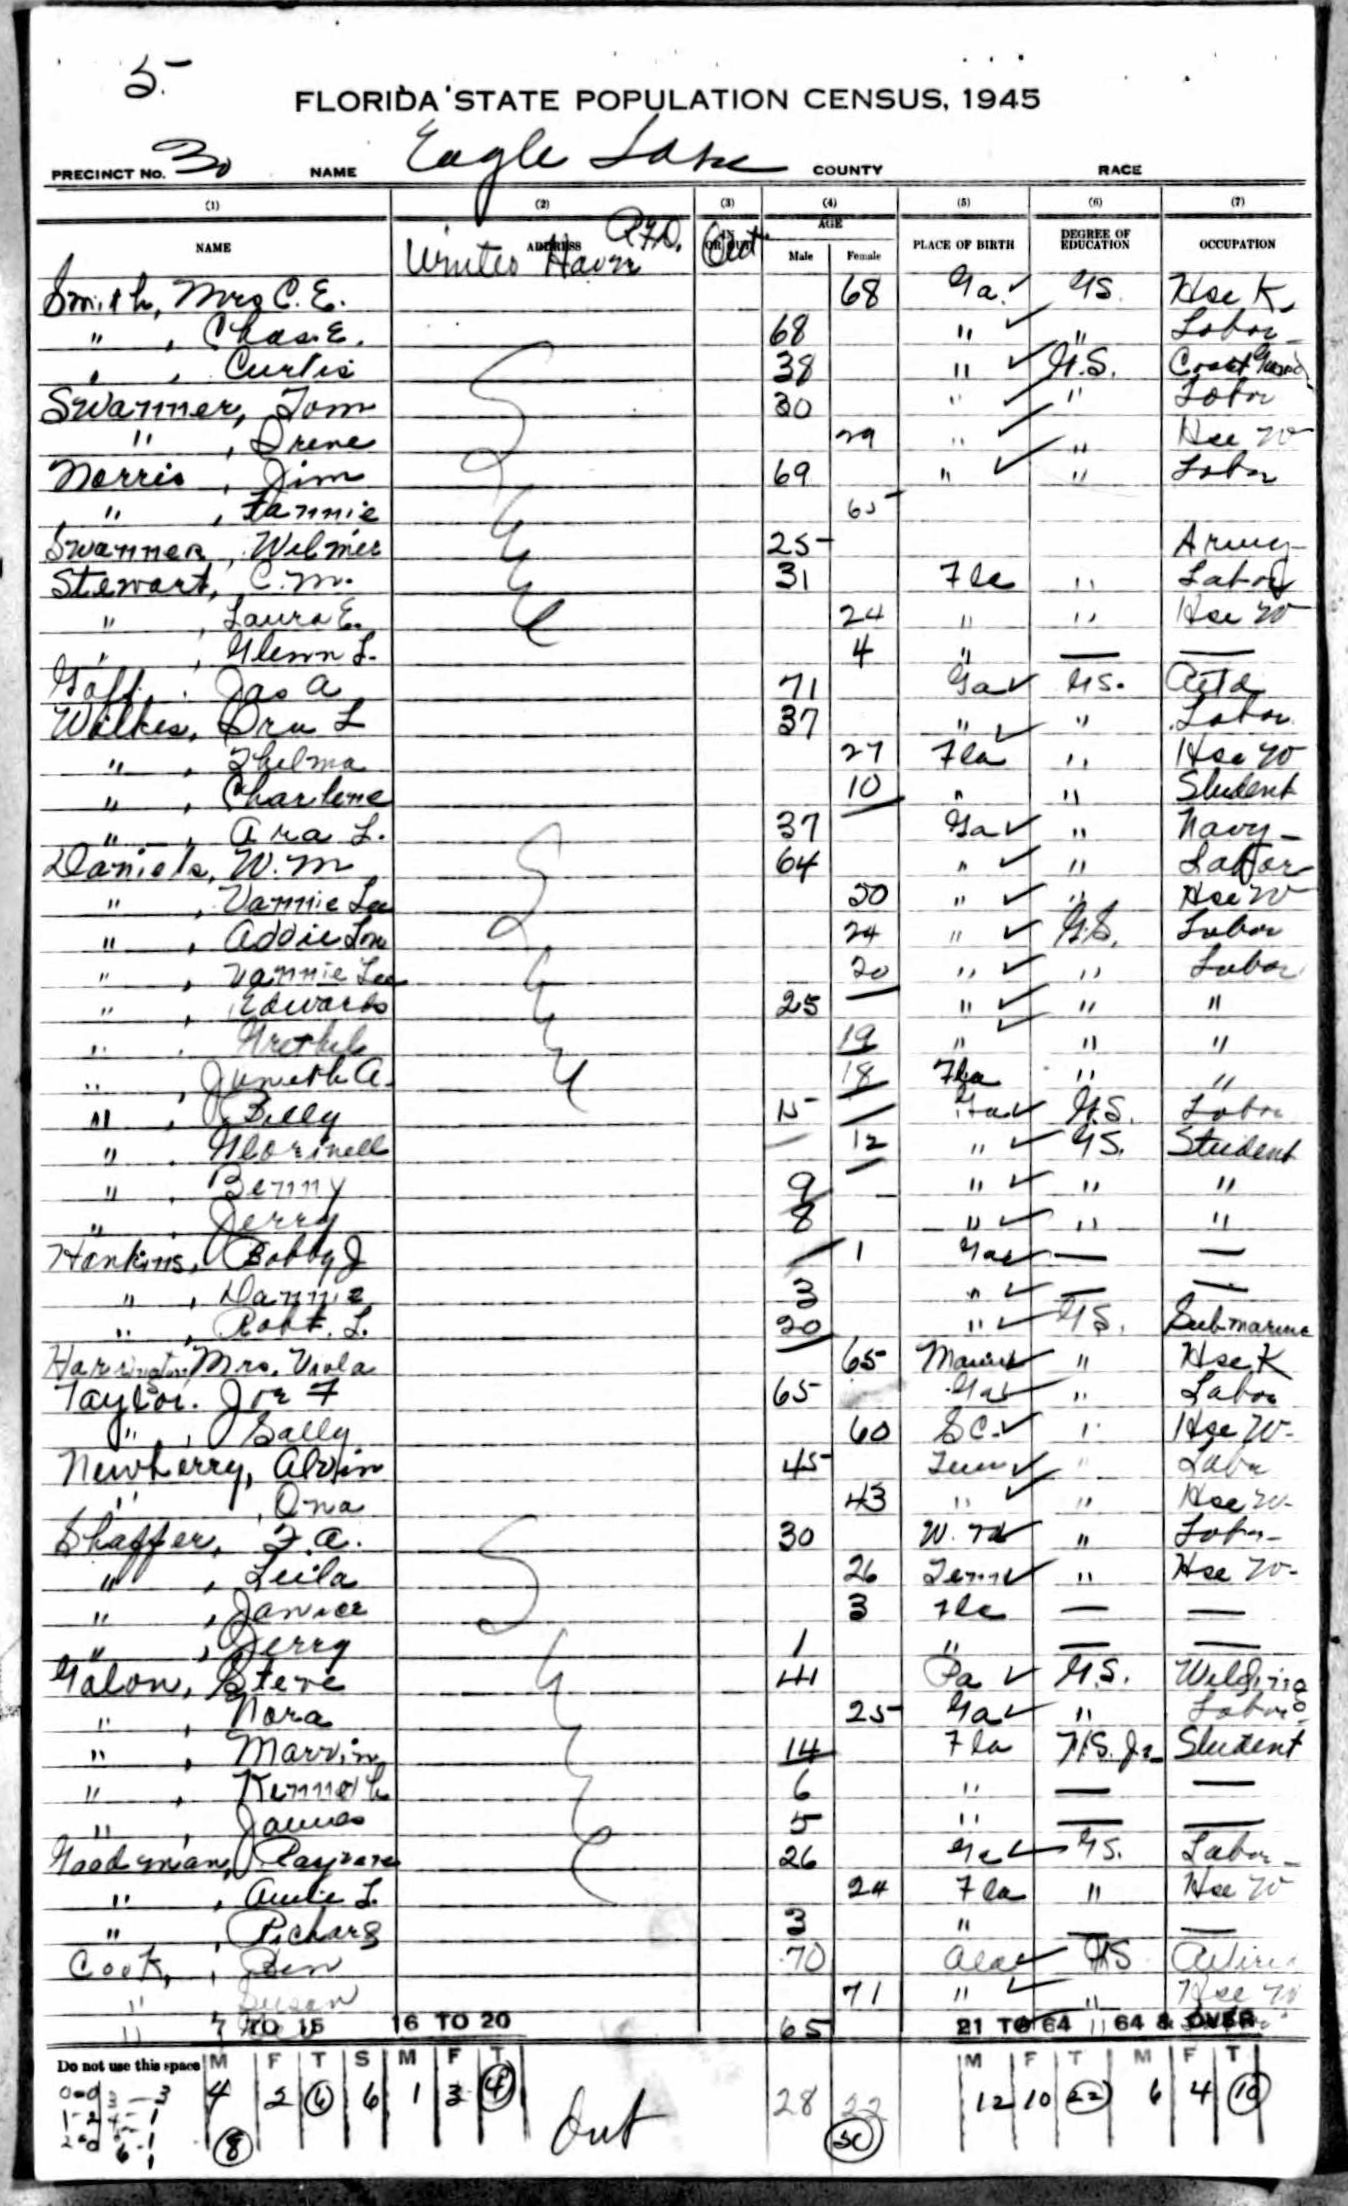 5.
FLORIDA STATE POPULATION CENSUS, 1945
PRECINCT No. 30 NAME Eagle Lake COUNTY RACE
(1) (2) (3) (4) (5) (6) (7)
NAME ADDRESS IN OR OUT AGE Male Female PLACE OF BIRTH DEGREE OF EDUCATION OCCUPATION
Winter Haven R.F.D. Out
Smith, Mrs C. E. 68 Ga. GS. Hse K.
" , Chas. E. 68 " " Labor
" , Curtis 38 " G.S. Coast Guard
Swanner, Tom 30 " " Labor
" , Irene 29 " " Hse W
Norris, Jim 69 " " Labor
" , Fannie 65
Swanner, Wilmer 25 Army
Stewart, C. M. 31 Fla " Labor
" , Laura E. 24 " " Hse W
" , Glenn L. 4 " — —
Goff, Jas A 71 Ga GS.
Wilkes, Ira L 37 " " Labor
" , Thelma 27 Fla " Hse W
" , Charlene 10 " " Student
" , Ara L. 37 Ga " Navy
Daniels, W. M 64 " " Labor
" , Vannie Lee 50 " " Hse W
" , Addie Lou 24 " G.S. Labor
" , Vannie Lee 20 " " Labor
" , Edwards 25 " " "
" , 19 " " "
" , A. 18 Fla " "
" , Billy 15 Ga G.S. Labor
" , 12 " GS. Student
" , Benny 9 " " "
" , Jerry 8 " " "
Hankins, Bobby J 1 Ga — —
" , Dannie 3 " — —
" , Robt. L. 20 " GS. Submarine
Harrington, Mrs. Viola 65 " Hse K
Taylor, Joe F 65 Ga " Labor
" , Sally 60 S C. " Hse W.
Newberry, Alvin 45 Tenn " Labor
" , Ona 43 " " Hse W.
Shaffer, F. A. 30 " Labor
" , Leila 26 Tenn " Hse W.
" , Janice 3 Fla — —
" , Jerry 1 " — —
Galon, Steve 41 Pa G.S. Welding
" , Nora 25 Ga " Labor
" , Marvin 14 Fla H.S. Jr. Student
" , Kenneth 6 " — —
" , James 5 " — —
Goodman, 26 Ga GS. Labor
" , L. 24 Fla " Hse W
" , Richard 3 " — —
Cook, Ben 70 Ala
" , Susan 71 " " Hse W
" 65 "
7 TO 15 16 TO 20 21 TO 64 64 & OVER
Do not use this space M F T S M F T M F T M F T
4 2 6 6 1 3 4 28 22 12 10 22 6 4 10
8 Out 50